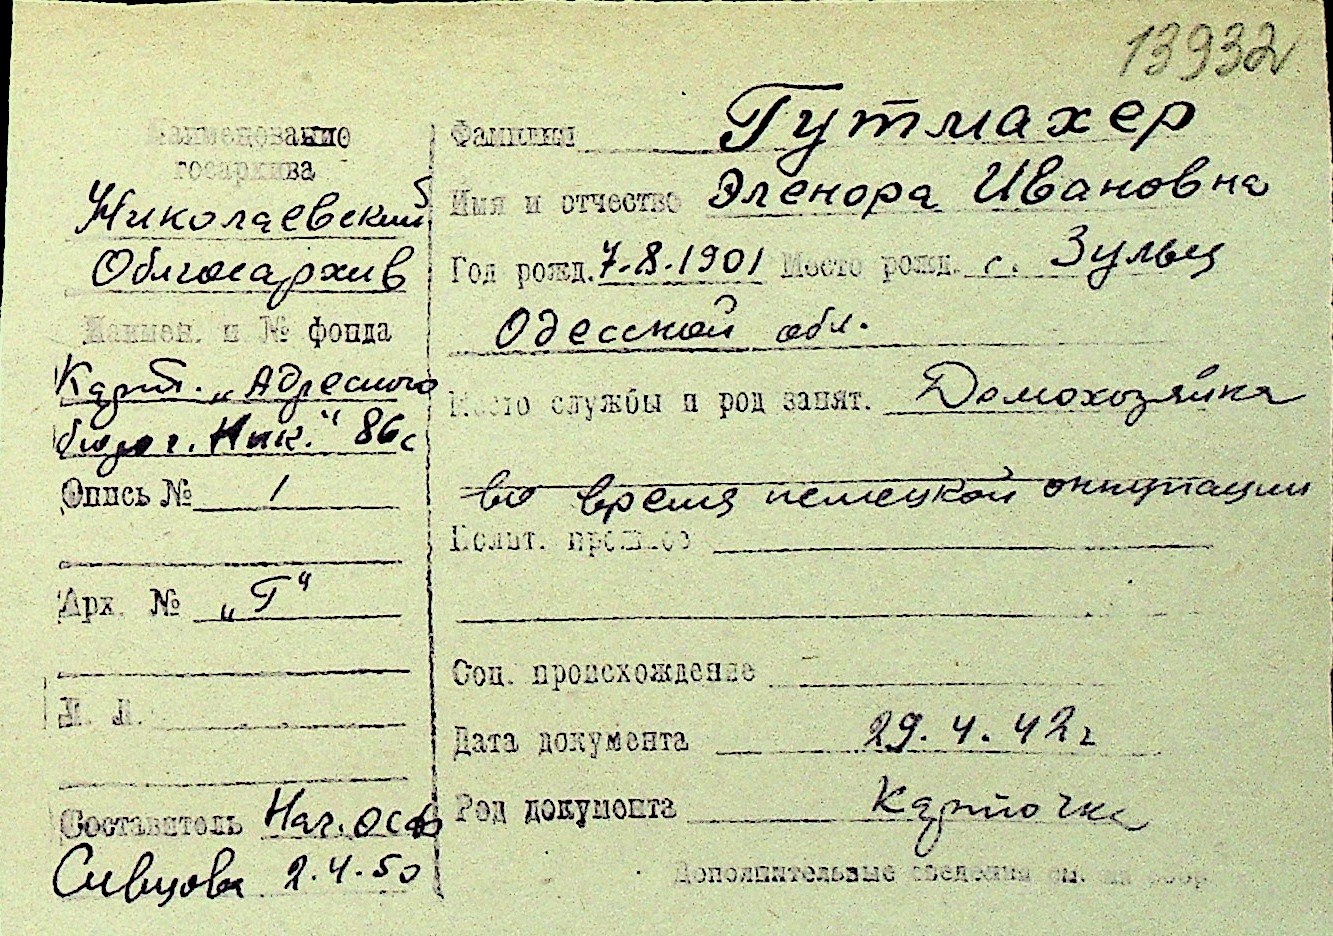 13932
Наименование
госархива
Николаевский
Облгосархив
Наимен. и № фонда
Карт. „Адресного
бюро г. Ник.“ 86с
Опись № 1
Арх. № „Г“
Л. Л.
Составитель Нач. ОСФ
Сивцова 2.4.50
Фамилия Гутмахер
Имя и отчество Эленора Ивановна
Год рожд. 7.8.1901 Место рожд. с. Зульц
Одесской обл.
Место службы и род занят. Домохозяйка
во время немецкой оккупации
Полит. прошлое
Соц. происхождение
Дата документа 29.4.42г
Род документа Карточка
Дополнительные сведения см. на обор.